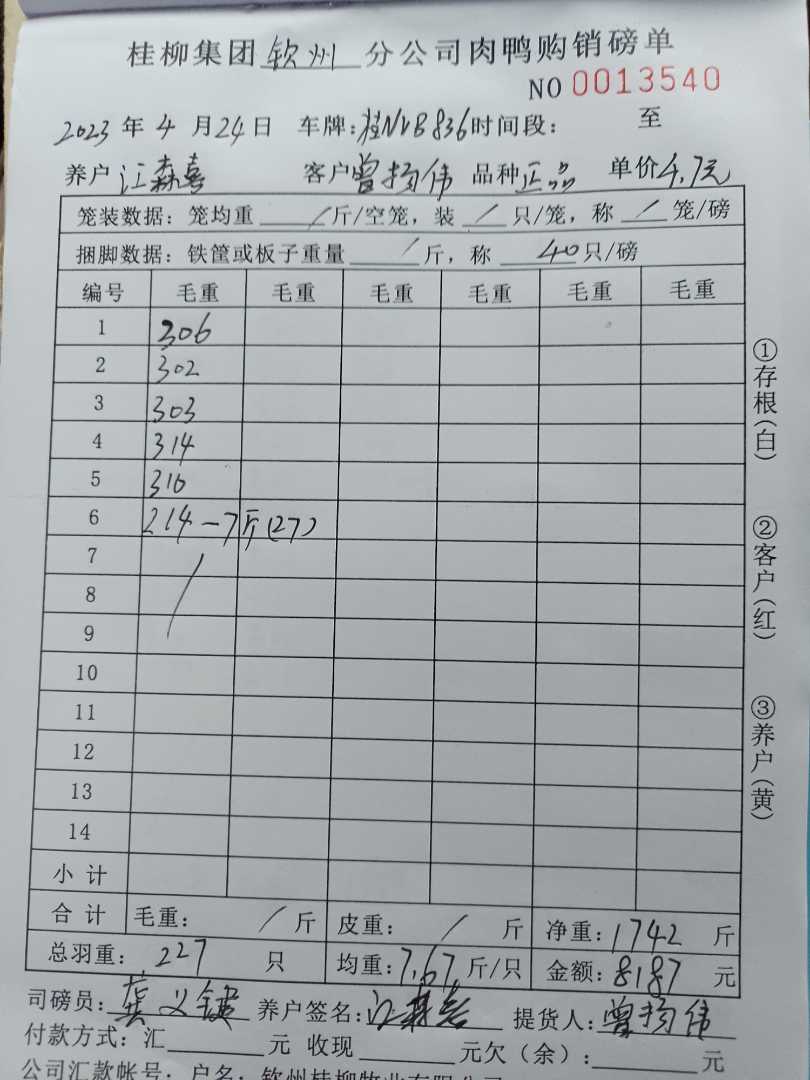 桂柳集团钦州分公司肉鸭购销磅单
NO 0013540
2023年4月24日 车牌:桂NVB836时间段: 至
养户江森喜 客户曾扬伟 品种正品 单价4.7元
笼装数据:笼均重 / 斤/空笼,装 / 只/笼,称 / 笼/磅
捆脚数据:铁筐或板子重量 / 斤,称 40只/磅
编号 毛重 毛重 毛重 毛重 毛重 毛重
1 306
2 302
3 303
4 314
5 310
6 214-7斤(27)
7 /
8
9
10
11
12
13
14
小计
合计 毛重: / 斤 皮重: / 斤 净重:1742斤
总羽重:227只 均重:7.67斤/只 金额:8187元
司磅员:龚义 养户签名:江森喜 提货人:曾扬伟
付款方式:汇 元 收现 元欠(余): 元
公司汇款帐号:户名:钦州桂柳牧业有限公司
①存根(白)
②客户(红)
③养户(黄)